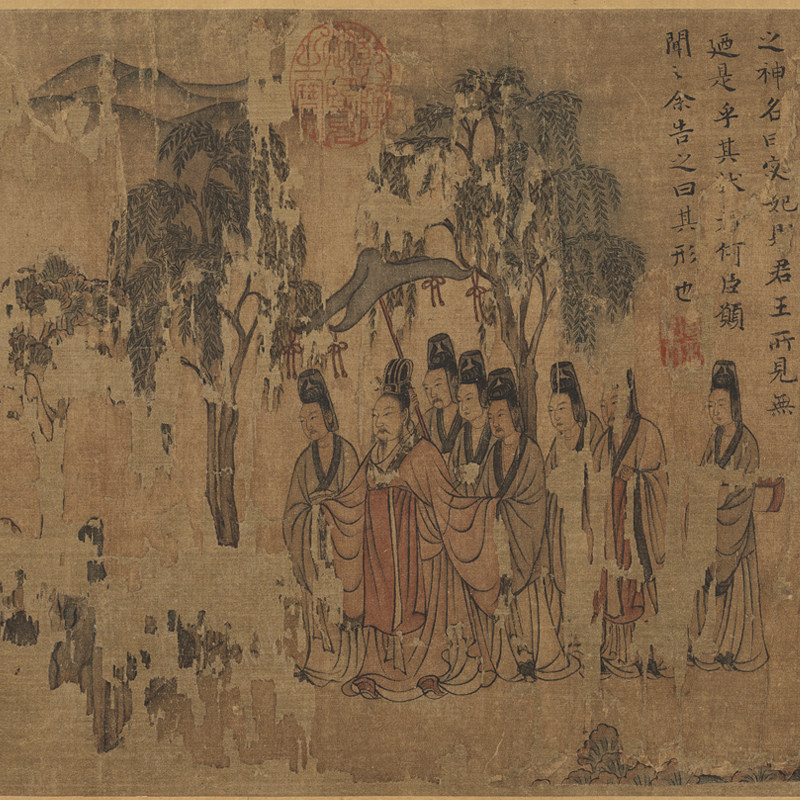 之神名曰宓妃則君王所見無
廼是乎其狀何臣願
聞之余告之曰其形也